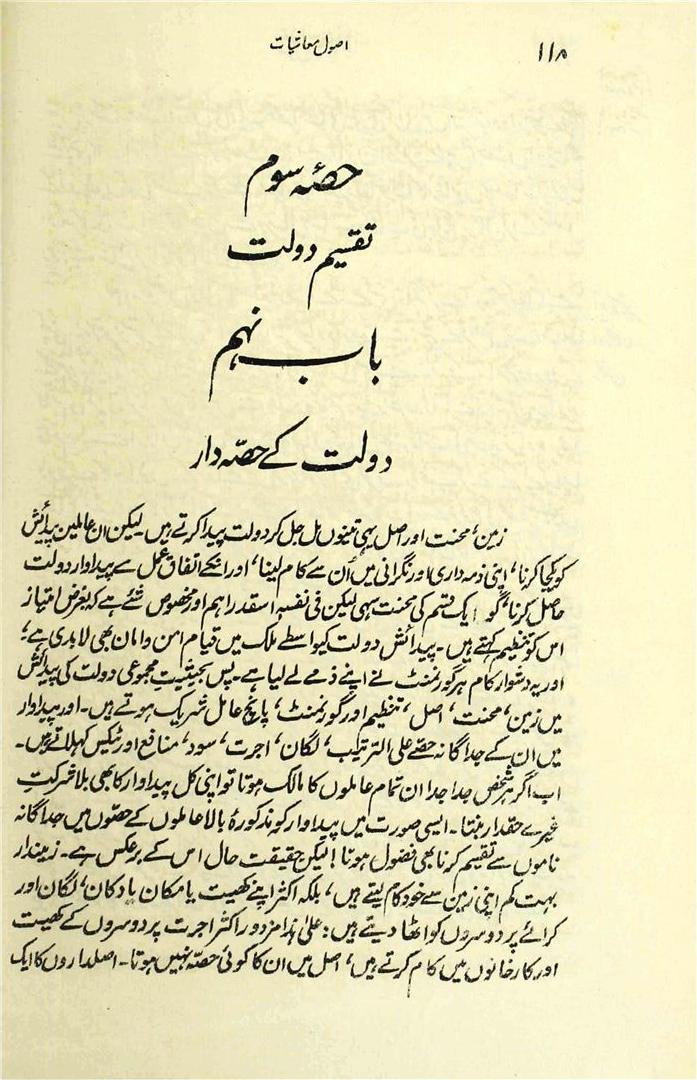 اصول معاشیات
۱۱۸
حصۂ سوم
تقسیم دولت
باب نہم
دولت کے حصّہ دار
زمین، محنت اور اصل یہی تینوں مل جل کر دولت پیدا کرتے ہیں۔ لیکن ان عاملین پیدائش
کو یکجا کرنا، اپنی ذمہ داری اور نگرانی میں اُن سے کام لینا، اور انکے اتفاق عمل سے پیداوار دولت
حاصل کرنا، گو ایک قسم کی محنت سہی لیکن فی نفسہٖ اسقدر اہم اور مخصوص شئے ہے کہ بغرض امتیاز
اس کو تنظیم کہتے ہیں۔ پیدائش دولت کیواسطے ملک میں قیام امن و امان بھی لابدی ہے؛
اور یہ دشوار کام ہر گورنمنٹ نے اپنے ذمے لے لیا ہے۔ پس بحیثیت مجموعی دولت کی پیدائش
میں زمین، محنت، اصل، تنظیم اور گورنمنٹ، پانچ عامل شریک ہوتے ہیں۔ اور پیداوار
میں ان کے جداگانہ حصّے علی الترتیب، لگان، اجرت، سود، منافع اور ٹیکس کہلاتے ہیں۔
اب اگر ہر شخص جدا جدا ان تمام عاملوں کا مالک ہوتا تو اپنی کل پیداوار کا بھی بلا شرکتِ
غیرے حقدار بنتا۔ ایسی صورت میں پیداوار کو مذکورۂ بالا عاملوں کے حصّوں میں جداگانہ
ناموں سے تقسیم کرنا بھی فضول ہوتا! لیکن حقیقت حال اس کے برعکس ہے۔ زمیندار
بہت کم اپنی زمین سے خود کام لیتے ہیں، بلکہ اکثر اپنے کھیت یا مکان یا دکان، لگان اور
کرائے پر دوسروں کو اٹھا دیتے ہیں؛ علیٰ ہذا مزدور اکثر اجرت پر دوسروں کے کھیت
اور کارخانوں میں کام کرتے ہیں، اصل میں ان کا کوئی حصّہ نہیں ہوتا۔ اصلداروں کا ایک